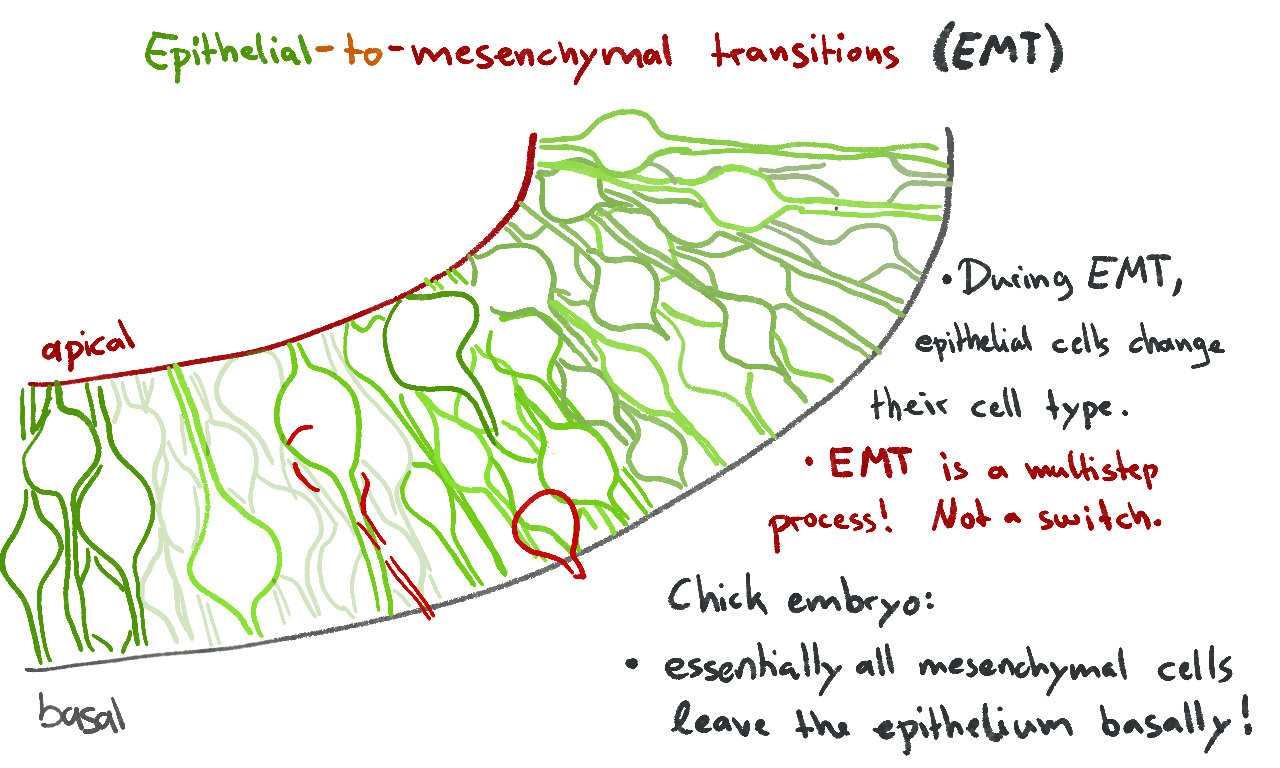 Epithelial-to-mesenchymal transitions (EMT)
apical
basal
• During EMT,
epithelial cells change
their cell type.
• EMT is a multistep
process! Not a switch.
Chick embryo:
• essentially all mesenchymal cells
leave the epithelium basally!